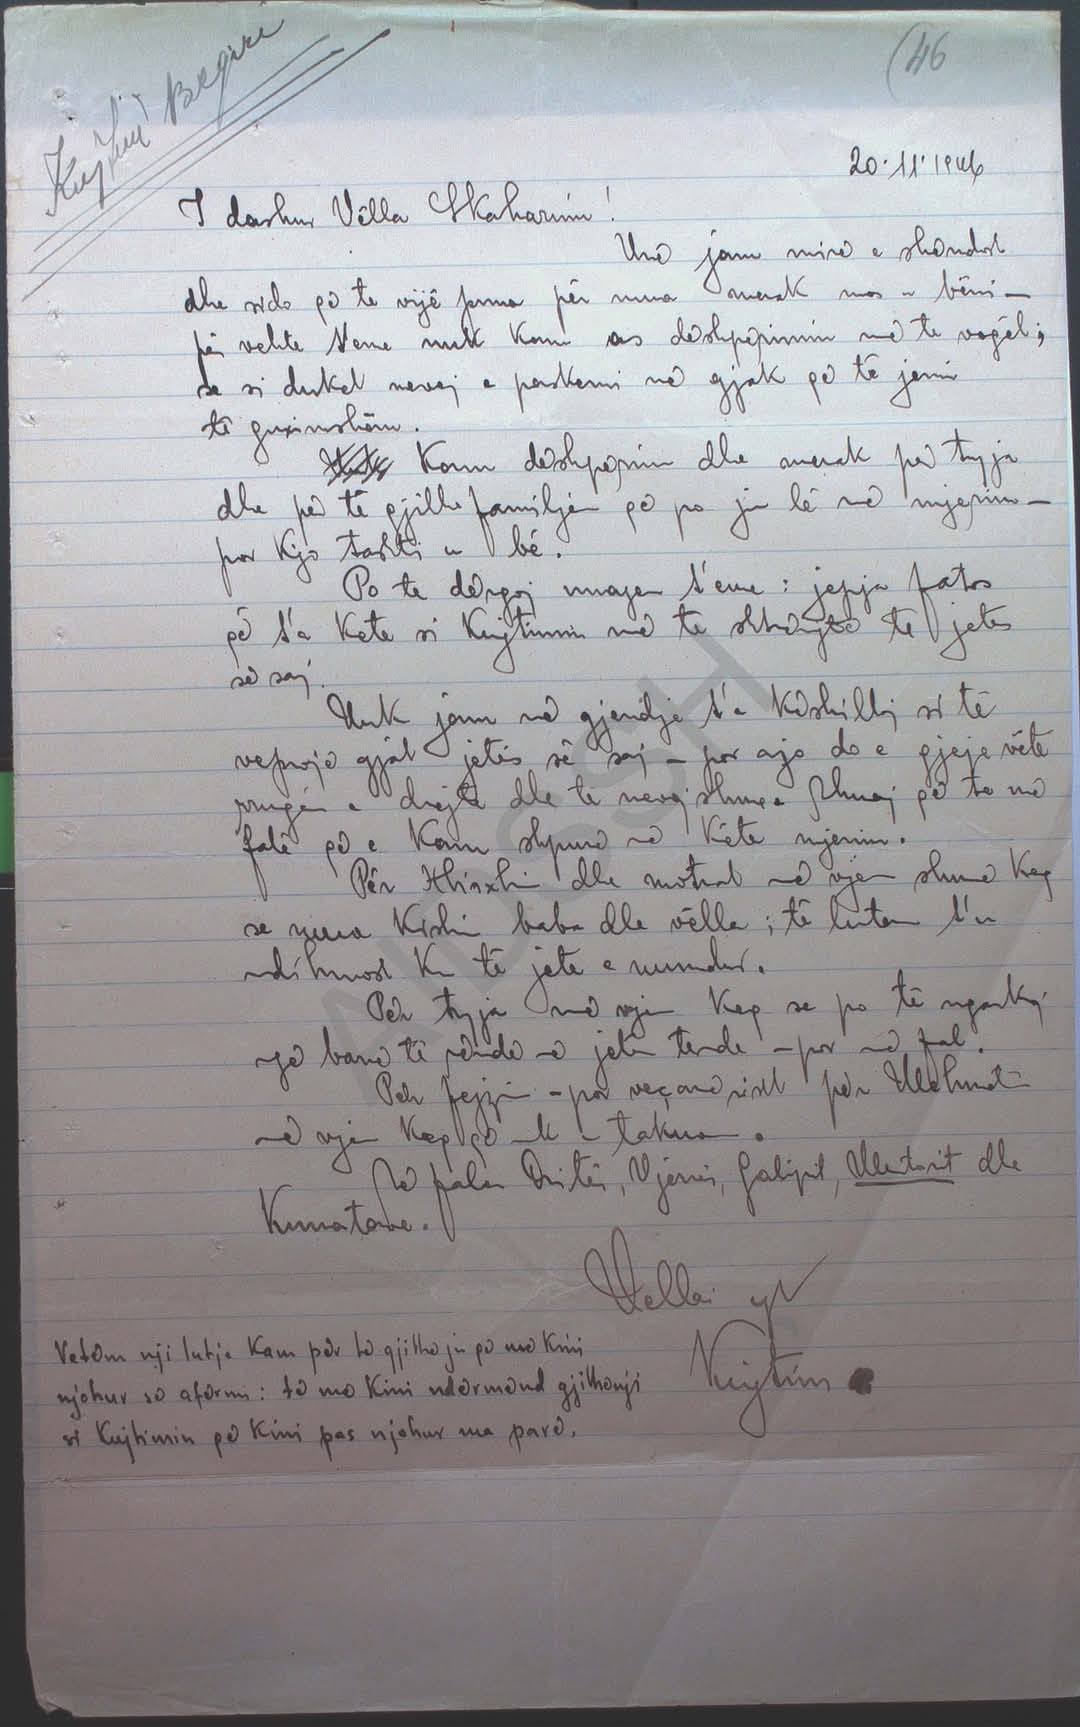 Kujtim Beqiri
(46
20.11.1946
I dashur Vëlla Skaharim!
Unë jam mirë e shëndosh
dhe sido që te vijë puna për mua merak mos u bëni –
për vehte t'eme nuk kam as dëshpërimin më te vogël;
se si duket nevoj e paskemi në gjak që të jemi
të guximshëm.
Kam dëshpërim dhe merak për tyja
dhe për të gjithë familjën që po ju lë në mjerim –
por kjo tashti u bë.
Po te dërgoj unazen t'eme: jepja fatos
që t'a kete si Kujtimin më te shtrêjtë te jetës
së saj.
Nuk jam në gjendje t'a këshilloj si të
veproje gjat jetës së saj – por ajo do e gjeje vëte
rrugën e drejtë dhe te nevojshme. Thuaj që te më
falë që e kam shpurë në këte mjerim.
Për dhe motrat më vjen shumë keq
se mua kishin baba dhe vëlla; të lutem t'u
ndihmosh ku të jete e mundur.
Për tyja më vjen keq se po të ngarkoj
një barrë të rëndë në jetën tënde – por më fal.
Për Fejzin – por veçanërisht për Mehmetin
më vjen keq që nuk u takuam.
Të falen Dritës, Vjenes, Galipit, dhe
Kunatave.
Vëllai yt
Kujtim
Vetëm nji lutje kam për të gjithë ju që më kini
njohur së afërmi: të më kini ndërmend gjithënji
si Kujtimin që kini pas njohur ma parë.
AIDSSH